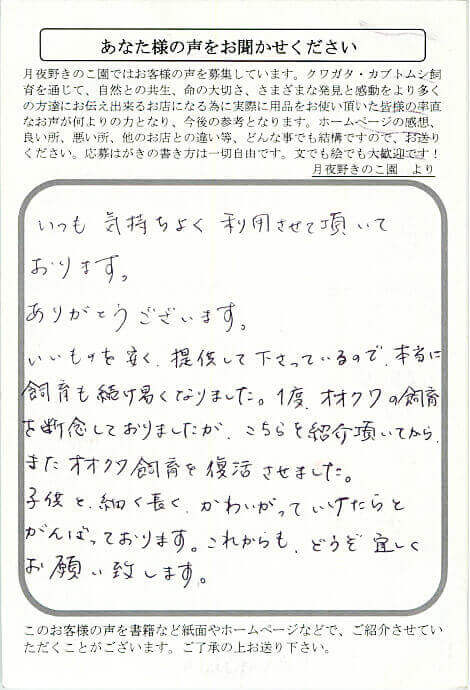 あなた様の声をお聞かせください
月夜野きのこ園ではお客様の声を募集しています。クワガタ・カブトムシ飼
育を通じて、自然との共生、命の大切さ、さまざまな発見と感動をより多く
の方達にお伝え出来るお店になる為に実際に用品をお使い頂いた皆様の率直
なお声が何よりの力となり、今後の参考となります。ホームページの感想、
良い所、悪い所、他のお店との違い等、どんな事でも結構ですので、お送り
ください。応募はがきの書き方は一切自由です。文でも絵でも大歓迎です！
月夜野きのこ園　より
いつも 気持ちよく 利用させて頂いて
おります。
ありがとうございます。
いいものを安く、提供して下さっているので、本当に
飼育も続け易くなりました。1度、オオクワの飼育
を断念しておりましたが、こちらを紹介頂いてから、
また オオクワ飼育を復活させました。
子供と、細く長く、かわいがっていけたらと
がんばっております。これからも、どうぞ宜しく
お願い致します。
このお客様の声を書籍など紙面やホームページなどで、ご紹介させてい
ただくことがございます。ご了承の上お送り下さい。